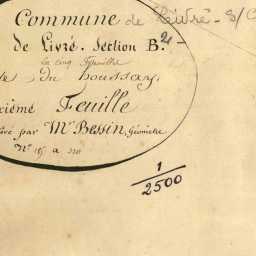 Commune de Livré - S/C
de Livré. Section B.2
la cinq Feuille
du houssay,
xième Feuille
par Mr Bessin, Géomètre
Nº 185 a
1
2500